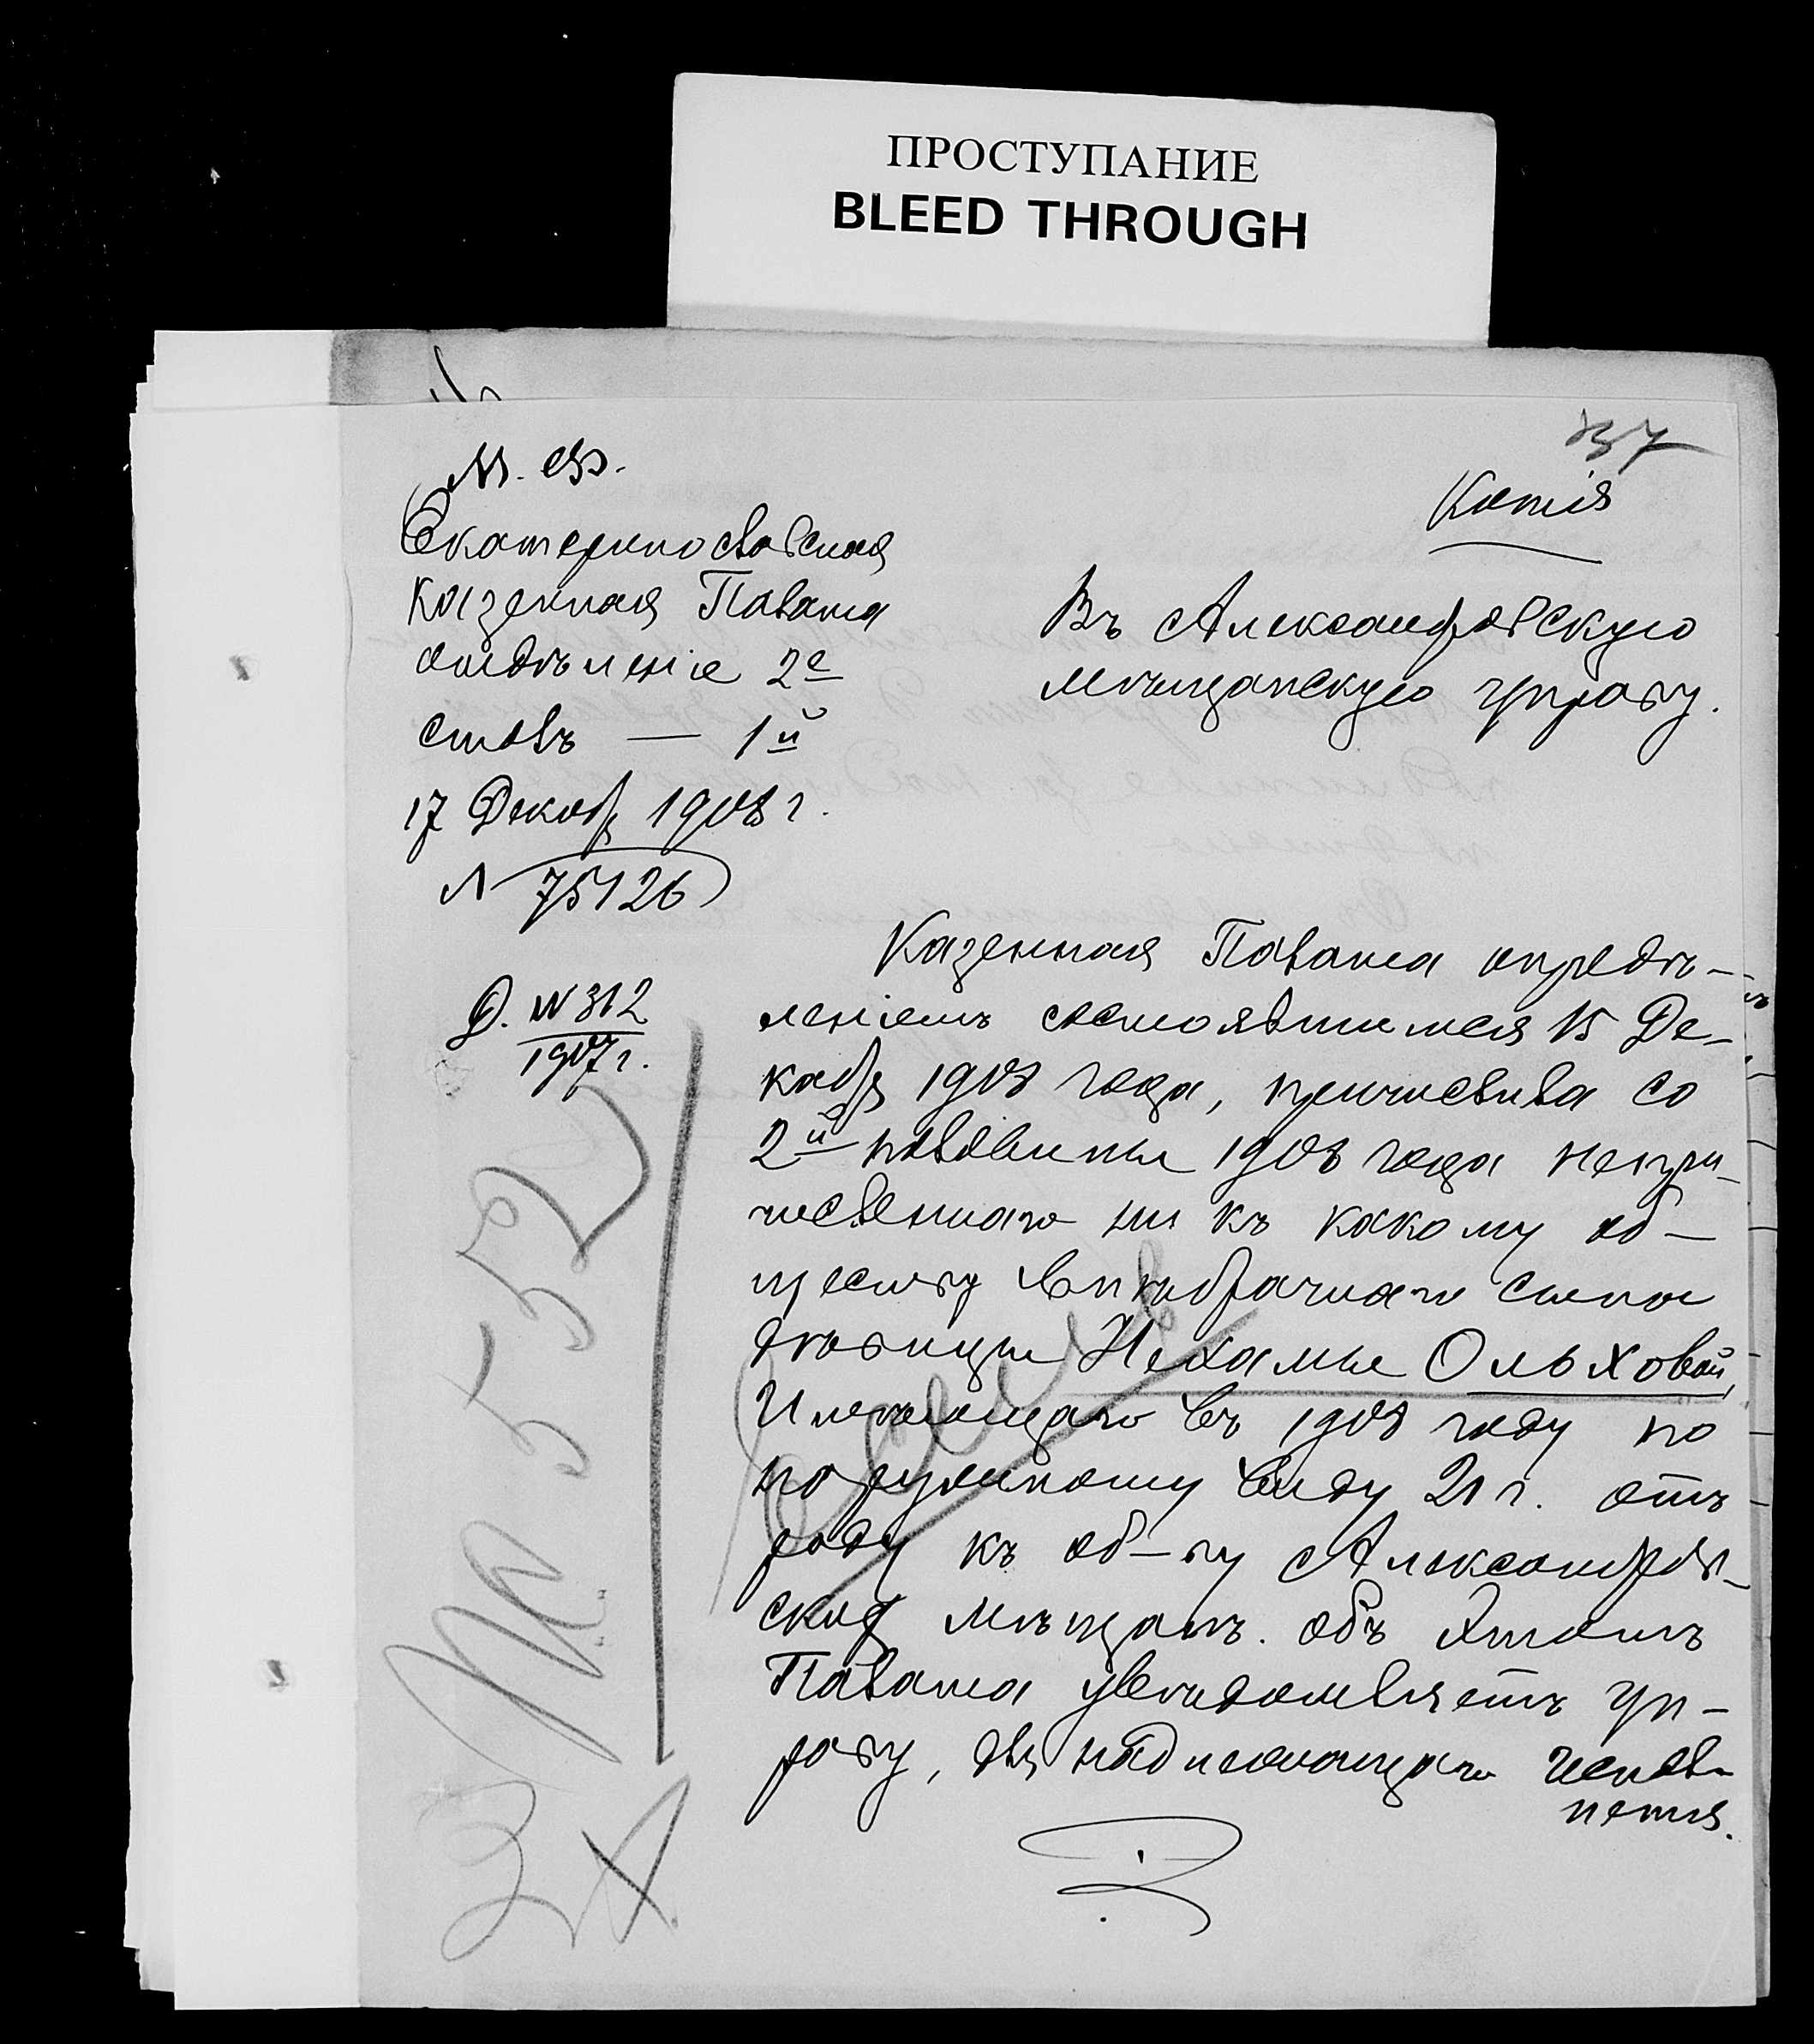 ПРОСТУПАНИЕ
BLEED THROUGH
37
Копія
М. Ф.
Екатеринославская
Казенная Палата
отдѣленіе 2е
столъ — 1й
17 Декабр 1908 г.
№ 75126
Д. № 312
1907 г.
Въ Александровскую
мѣщанскую управу.
Казенная Палата опредѣ-
леніемъ состоявшимся 15 Де-
кабр 1908 года, причислила со
2й половины 1908 года непри-
численнаго ни къ какому об-
ществу внѣбрачнаго сына
дѣвицы Нехамы Ольховой,
Имѣющаго въ 1908 году по
наружному виду 21 г. отъ
роду къ об-ву Александров-
ских мѣщанъ. Объ этомъ
Палата увѣдомляетъ Уп-
раву, для надлежащаго испол-
ненія.
5552